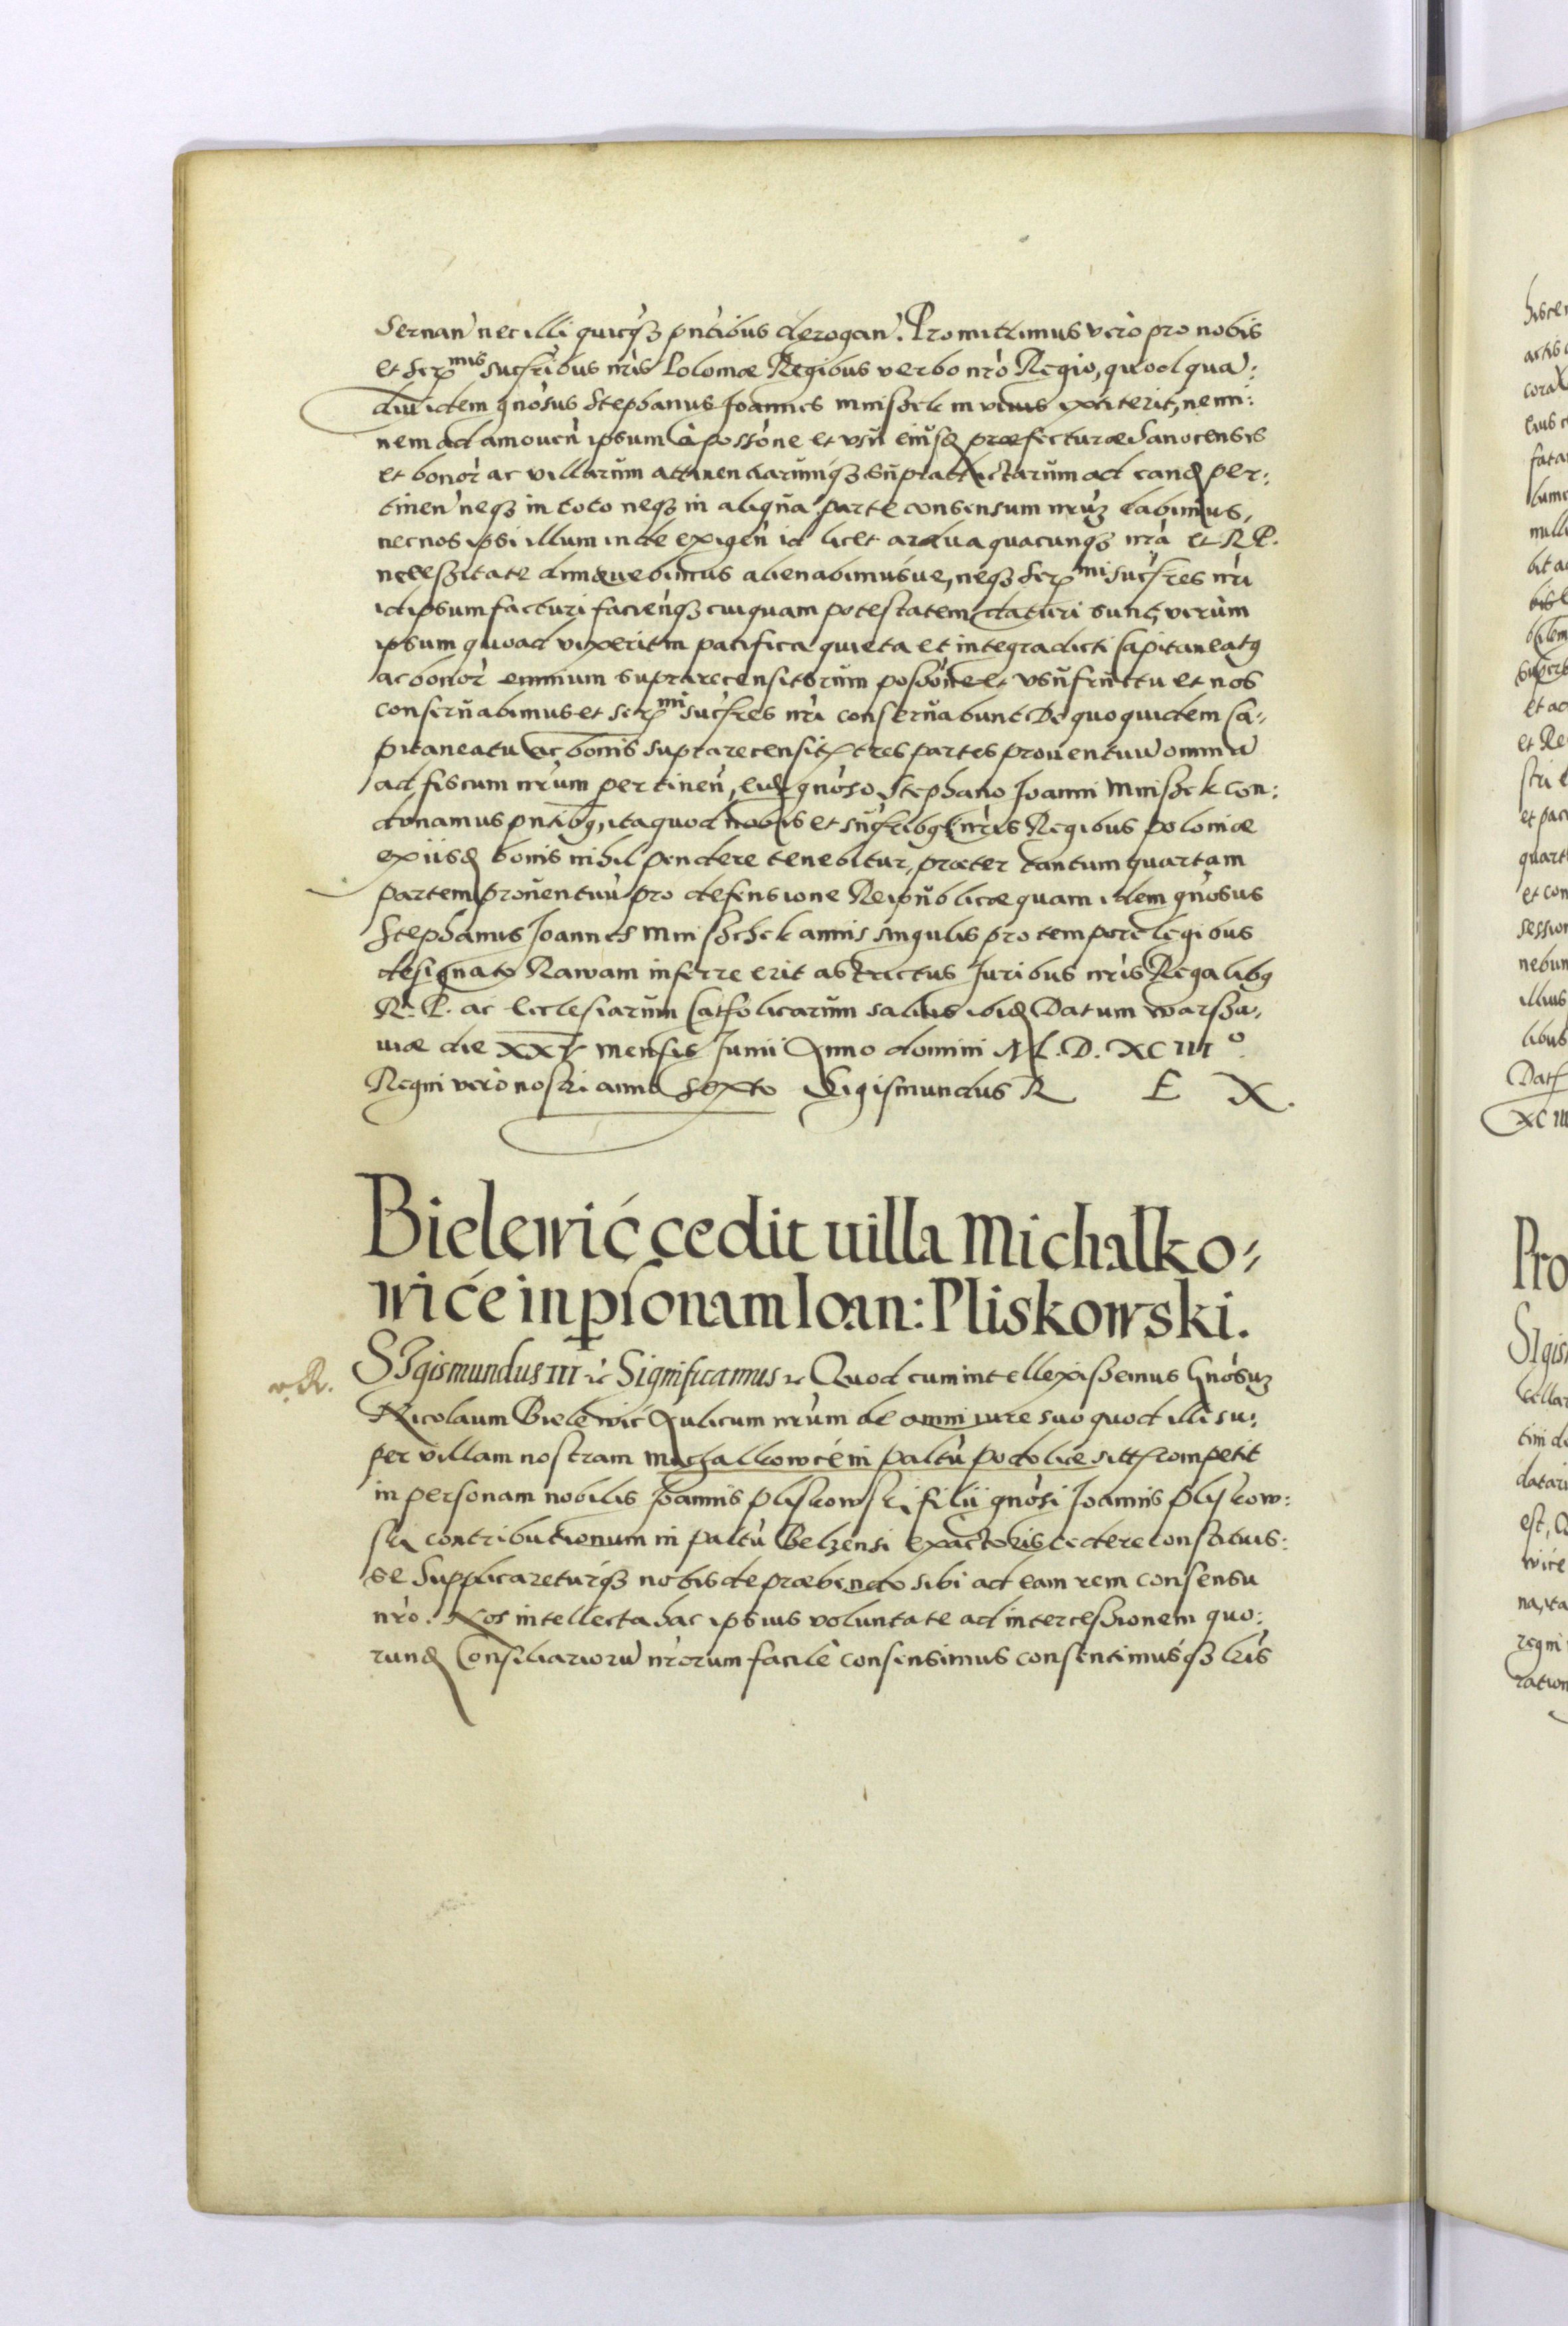 seruan̄ nec illi quicq̃ꝫ pn̄tibus derogan̄. Promittimus vero pro nobis
et Ser^mis succ̄ribus nr̄is Poloniæ Regibus verbo nr̄o Regio, quod qua:
diu idem gn̄osus Stephanus Joannes Mnishek in viuis extiterit, nemi:
nem ad amouen̄ ipsum à possone et vsu eiusd præfecturæ Sanocensis
et bonor̄ ac villarum attinentiarumqꝫ supradictarum ad eand per:
tinen̄ neqꝫ in toto neqꝫ in aliqua parte consensum nr̄uꝫ dabimus,
nec nos ipsi illum inde exigen̄ id licet ardua quacunqꝫ nr̄a et R.P.
necessitate dimouebimus alienabimusue, neqꝫ Ser^mi succ̄res nr̄i
id ipsum facturi faciendiqꝫ cuiquam potestatem daturi sunt, verùm
ipsum quoad vixerit in pacifica quieta et integra dicti Capitaneatꝰ
ac bonor̄ omnium suprarecensitorum possone et vsufructu et nos
conseruabimus et Ser^mi succ̄res nr̄i conseruabunt De quo quidem Ca:
pitaneatu ac bonis suprarecensit tres partes prouentuū omniū
ad fiscum nr̄um pertinen̄, eid gn̄oso Stephano Joanni Mnishek con:
donamus pn̄tibꝰ, ita quod nobis et succ̄ribꝰ nr̄is Regibus Poloniæ
ex iisd bonis nihil pendere tenebitur, præter tantum quartam
partem prouentuū pro defensione Reipublicæ quam idem gn̄osus
Stephanus Joannes Mnishchek annis singulis pro tempore legibus
designato Rawam inferre erit astrictus Juribus nr̄is Regalibꝰ
R. P. ac Ecclesiarum Catholicarum saluis ibid Datum Warsha:
uiæ die XXV mensis Junii Anno domini M.D.XCIII°
Regni vero nostri anno Sexto Sigismundus R E X.
Bielewić cedit uilla Michalko:
wiće in p̱sonam Ioan: Pliskowski.
SIgismundus III ꝛc Significamus ꝛc Quod cum intellexissemus Gn̄osuꝫ
Nicolaum Bielewić Aulicum nr̄um de omni iure suo quod illi su:
per villam nostram Michalkowće in paltū Podoliæ sitt competit
in personam nobilis Joannis Pliskowski filii gn̄osi Joannis Pliskow:
ski contributionum in paltū Belzensi exactoris cedere constituis:
se Supplicareturqꝫ nobis de præbendo sibi ad eam rem consensu
nr̄o. Nos intellecta hac ipsius voluntate ad intercessionem quo:
rund Consiliarioru nr̄orum facile consensimus consentimusqꝫ lr̄is